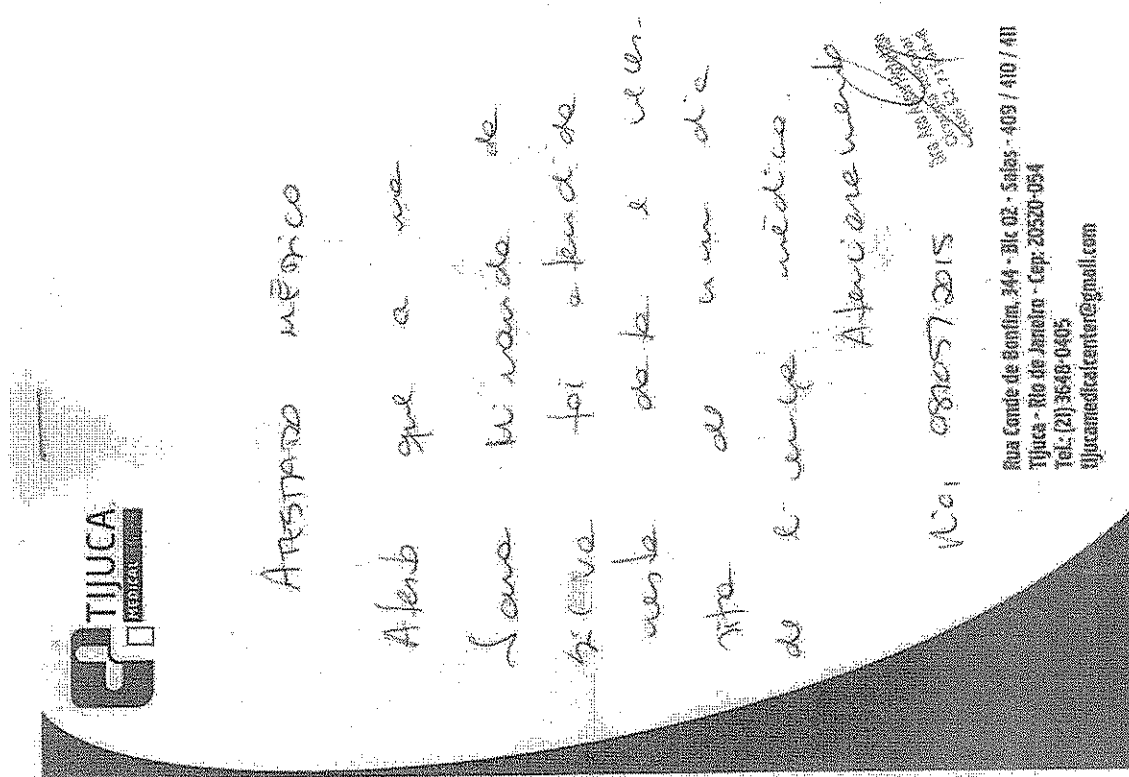 TIJUCA
MEDICAL
ATESTADO MÉDICO
Atesto que a
Miranda de
foi atendida
nesta data e neces-
sita de um dia
de licença médica.
Atenciosamente
Rio, 08/05/2015
Rua Conde de Bonfim, 344 - Blc 02 - Salas - 409 / 410 / 411
Tijuca - Rio de Janeiro - Cep: 20520-054
Tel.: (21) 3648-0405
tijucamedicalcenter@gmail.com